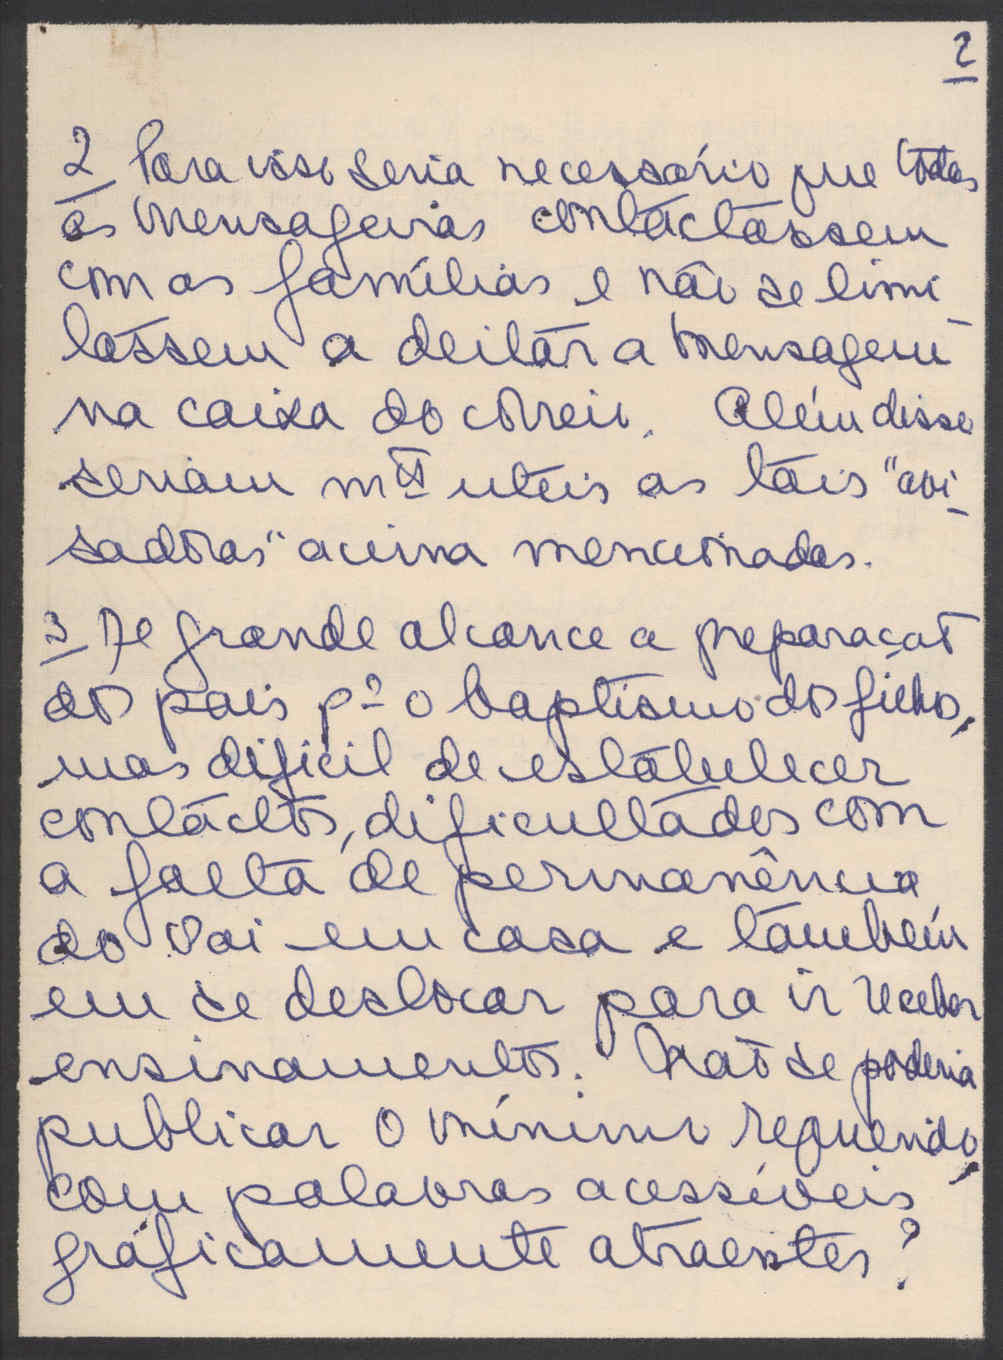 2
2 Para isso seria necessário que todas
as mensageiras contáctassem
com as famílias e não se limi_
tassem a deitar a mensagem
na caixa do correio. Além disso
seriam mtº uteis as tais "avi_
sadoras" acima mencionadas.
3 De grande alcance a preparação
dos pais pª o baptismo dos filhos,
mas dificil de estabelecer
contáctos, dificultados com
a falta de permanência
do Pai em casa e também
em se deslocar para ir receber
ensinamentos. Não se poderia
publicar o mínimo requerido,
com palavras acessíveis
gráficamente atraentes?